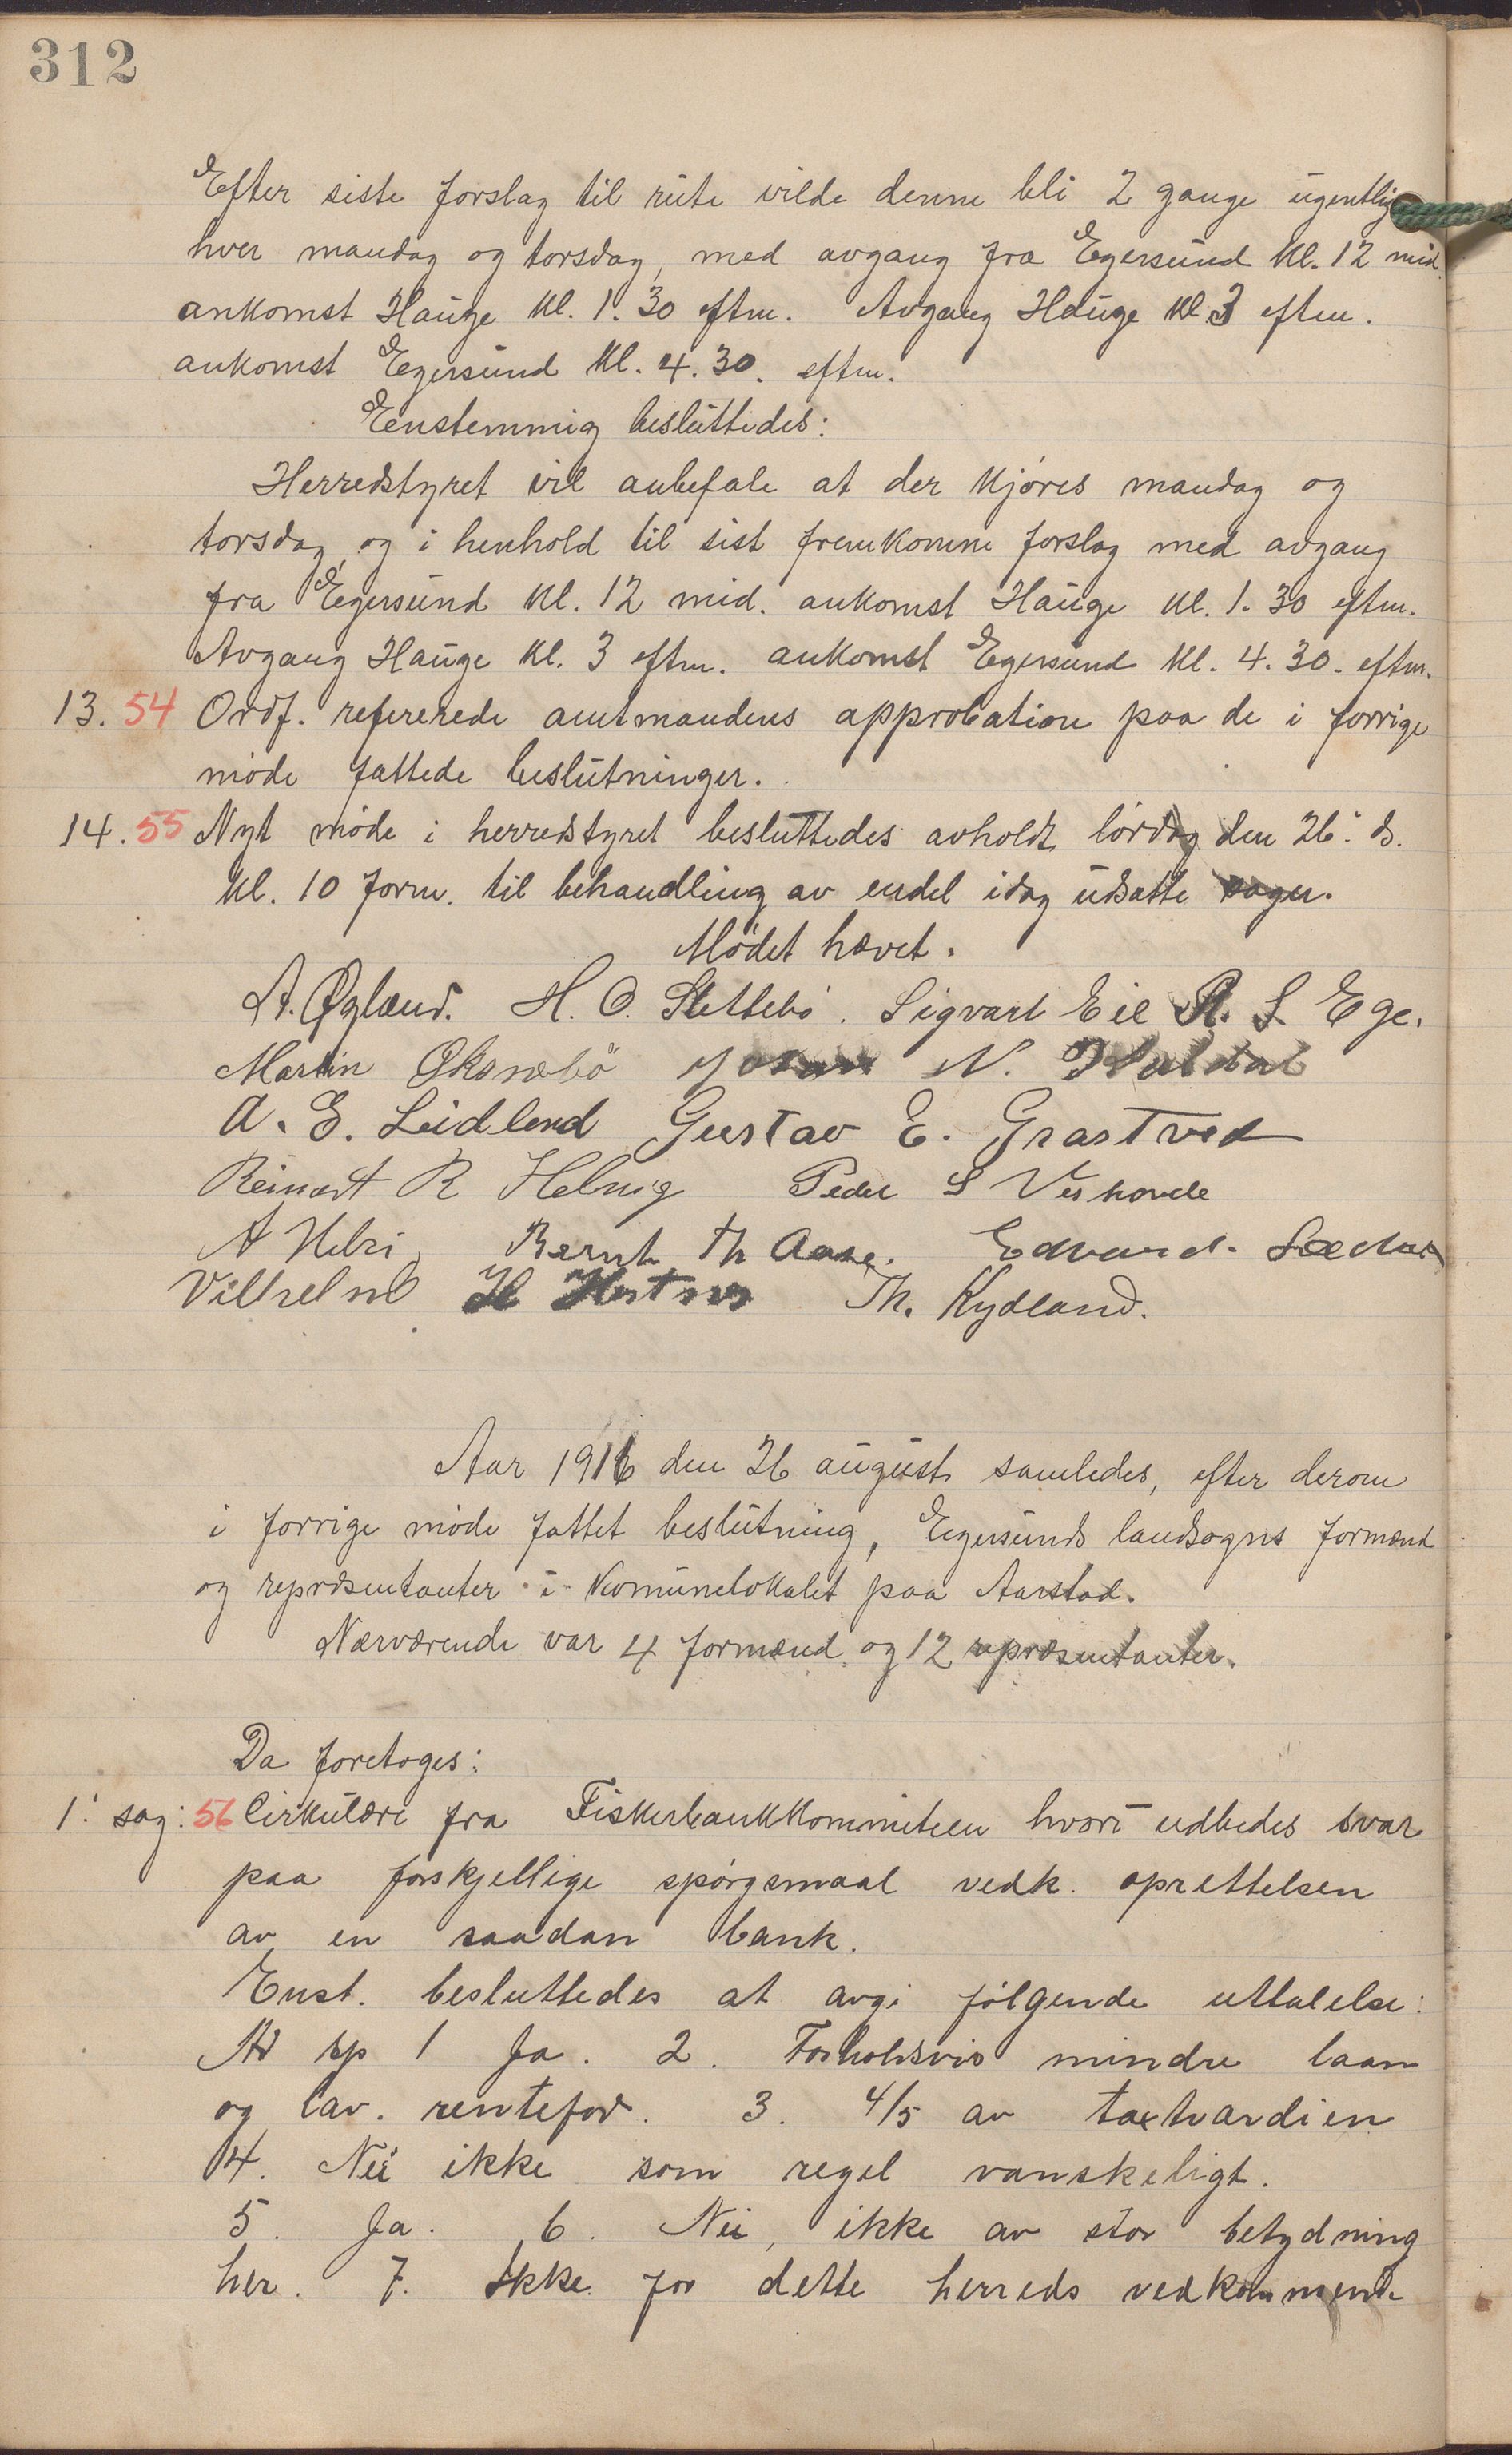 312
Efter siste forslag til rute vilde denne bli 2 gange ugentlig
hver mandag og torsdag, med avgang fra Egersund kl. 12 mid.
ankomst Hauge kl. 1.30 eftm. Avgang Hauge kl. 3 eftm.
ankomst Egersund kl. 4.30. eftm.
Eenstemmig besluttedes:
Herredstyret vil anbefale at der kjøres mandag og
torsdag, og i henhold til sist fremkomne forslag med avgang
fra Egersund kl. 12 mid. ankomst Hauge kl. 1.30 eftm.
Avgang Hauge kl. 3 eftm. ankomst Egersund kl. 4.30. eftm.
13. 54 Ordf. refererede amtmandens approbation paa de i forrige
møde fattede beslutninger.
14. 55 Nyt møde i herredstyret besluttedes avholdt lørdag den 26. ds.
kl. 10 form. til behandling av endel idag utsatte sager.
Mødet hævet.
A. Øglænd. H. O. Slettebø. Sigvart Eie R. S. Ege.
Martin Øksnebø N.
A. E. Leidland Gustav E. Grastved
Reinert R Helvig Peder S Veshovde
A Hebri Bernt Th Aase. Edvard
Vilhelm H Th. Kydland.
Aar 1916 den 26 august samledes, efter derom
i forrige møde fattet beslutning, Egersunds landsogns formænd
og repræsentanter i Komunelokalet paa Aarstad.
Nærværende var 4 formænd og 12 repræsentanter.
Da foretoges:
1. sag: 56 Cirkulære fra Fiskerbankkommiteen hvori udbedes svar
paa forskjellige spørgsmaal vedk. oprettelsen
av en saadan bank.
Enst. besluttedes at avgi følgende uttalelse:
Ad sp 1 Ja. 2. Forholdsvis mindre laan
og lav. rentefod. 3. 4/5 av taxtværdien
4. Nei ikke som regel vanskeligt.
5. Ja. 6. Nei, ikke av stor betydning
her. 7. Ikke for dette herreds vedkommende